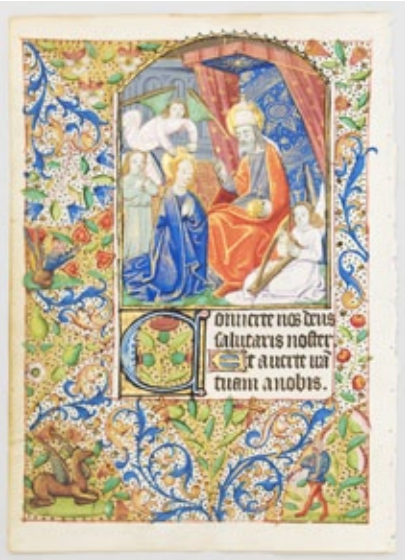 Conuerte nos deus
salutaris noster
Et auerte irā
tuam a nobis.